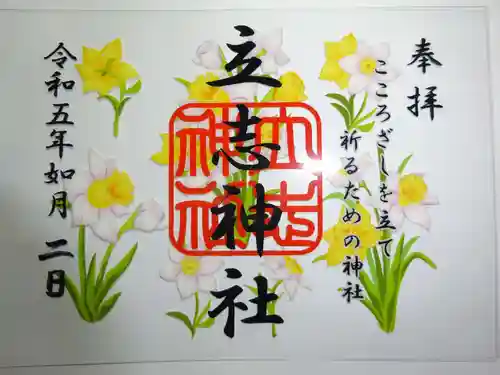 奉拝
こころざしを立て
祈るための神社
立志神社
立志神社
令和五年如月二日